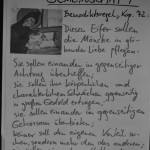 GEMEINSCHAFT
Benediktsregel, Kap. 72
Diesen Eifer sollen
die Mönche in glü-
hender Liebe pflegen:
Sie sollen einander in gegenseitiger
Achtung übertreffen;
sie sollen ihre körperlichen und
charakterlichen Schwächen gegenseitig
in großer Geduld ertragen,
sie sollen einander in gegenseitigem
Gehorsam überbieten;
keiner soll den eigenen Vorteil su-
chen, sondern mehr den des anderen;